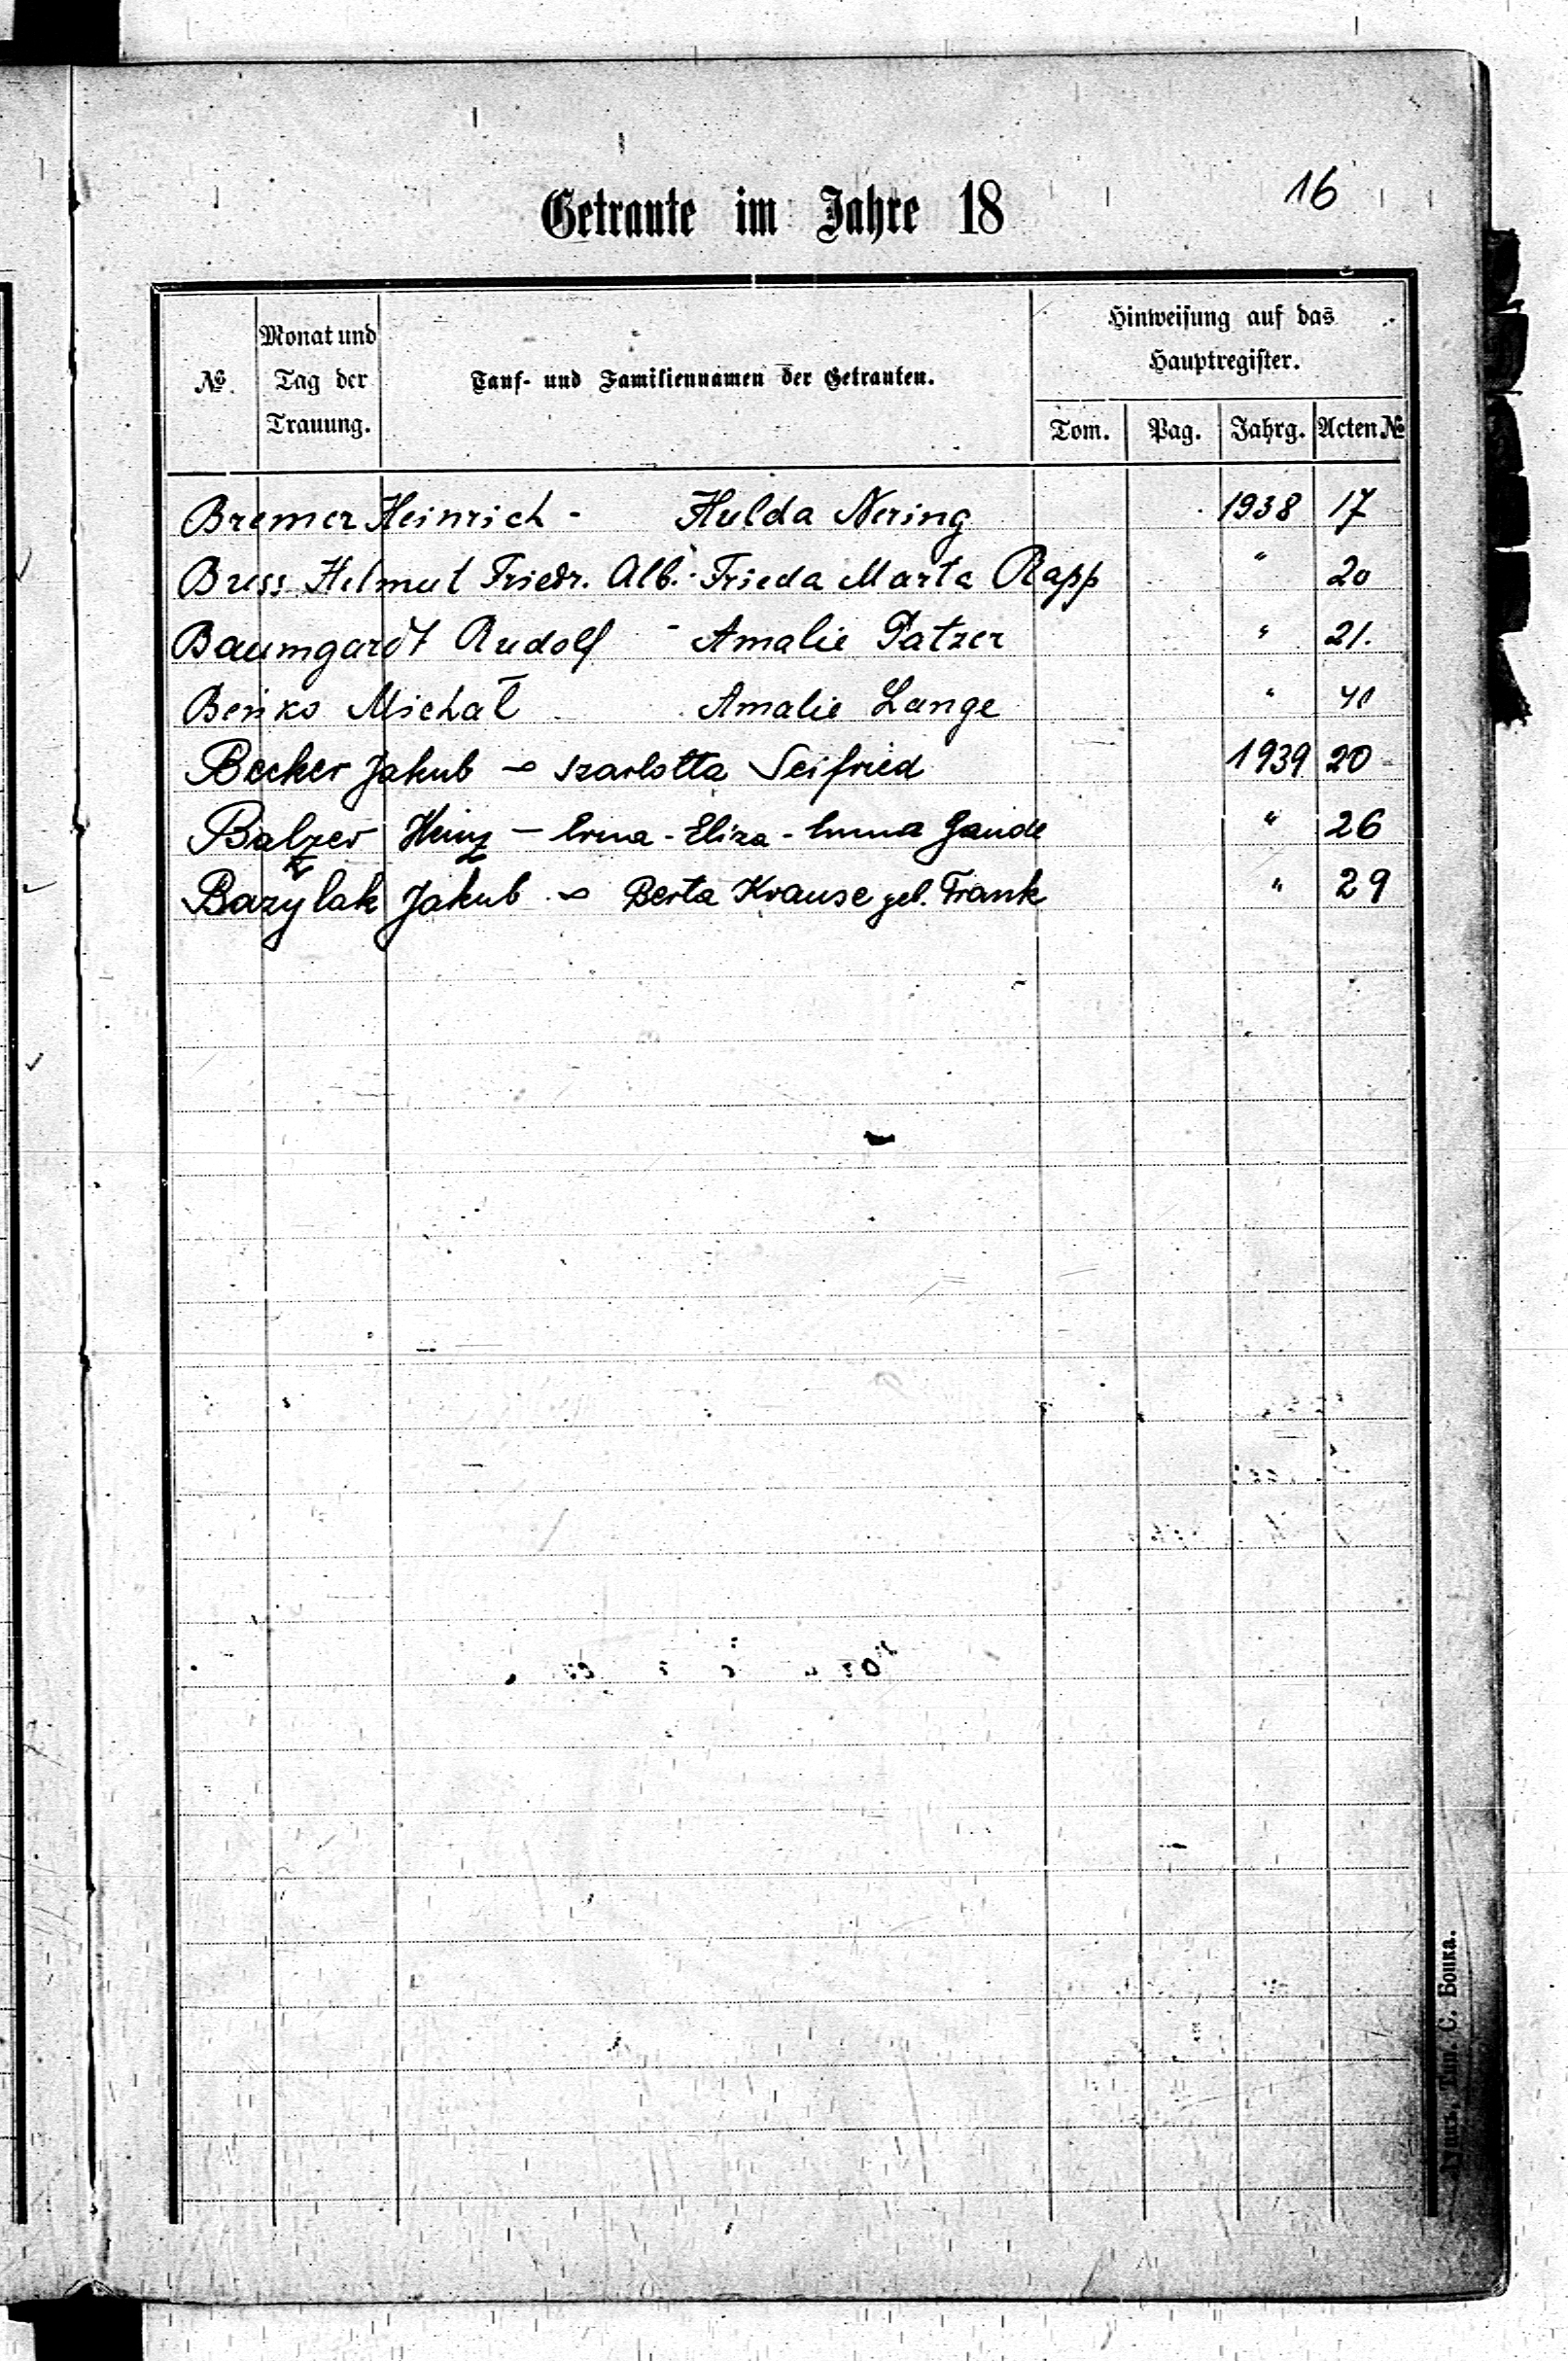 16
Getraute im Jahre 18
№.
Monat und
Tag der
Trauung.
Tauf- und Familiennamen der Getrauten.
Hinweisung auf das
Hauptregister.
Tom. Pag. Jahrg. Acten №
Bremer Heinrich - Hulda Nering 1938 17
Buss Helmut Friedr. Alb. - Frieda Marta Rapp " 20
Baumgardt Rudolf - Amalie Patzer " 21.
Benko Michał Amalie Lange "
Becker Jakub - Szarlotta Seifried 1939 20
Balzer Heinz - Erna - Eliza - Emma Gaude " 26
Bazylak Jakub - Berta Krause geb. Frank " 29
Тип. С. Бонка.